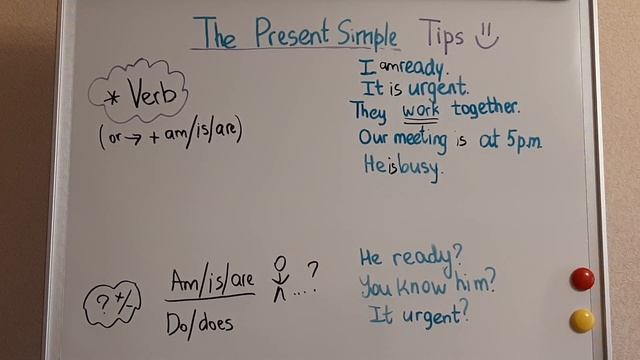 The Present Simple Tips
* Verb
(or → + am/is/are)
I am ready.
It is urgent.
They work together.
Our meeting is at 5p.m.
He is busy.
? +/-
Am/is/are
Do/does
...?
He ready?
You know him?
It urgent?